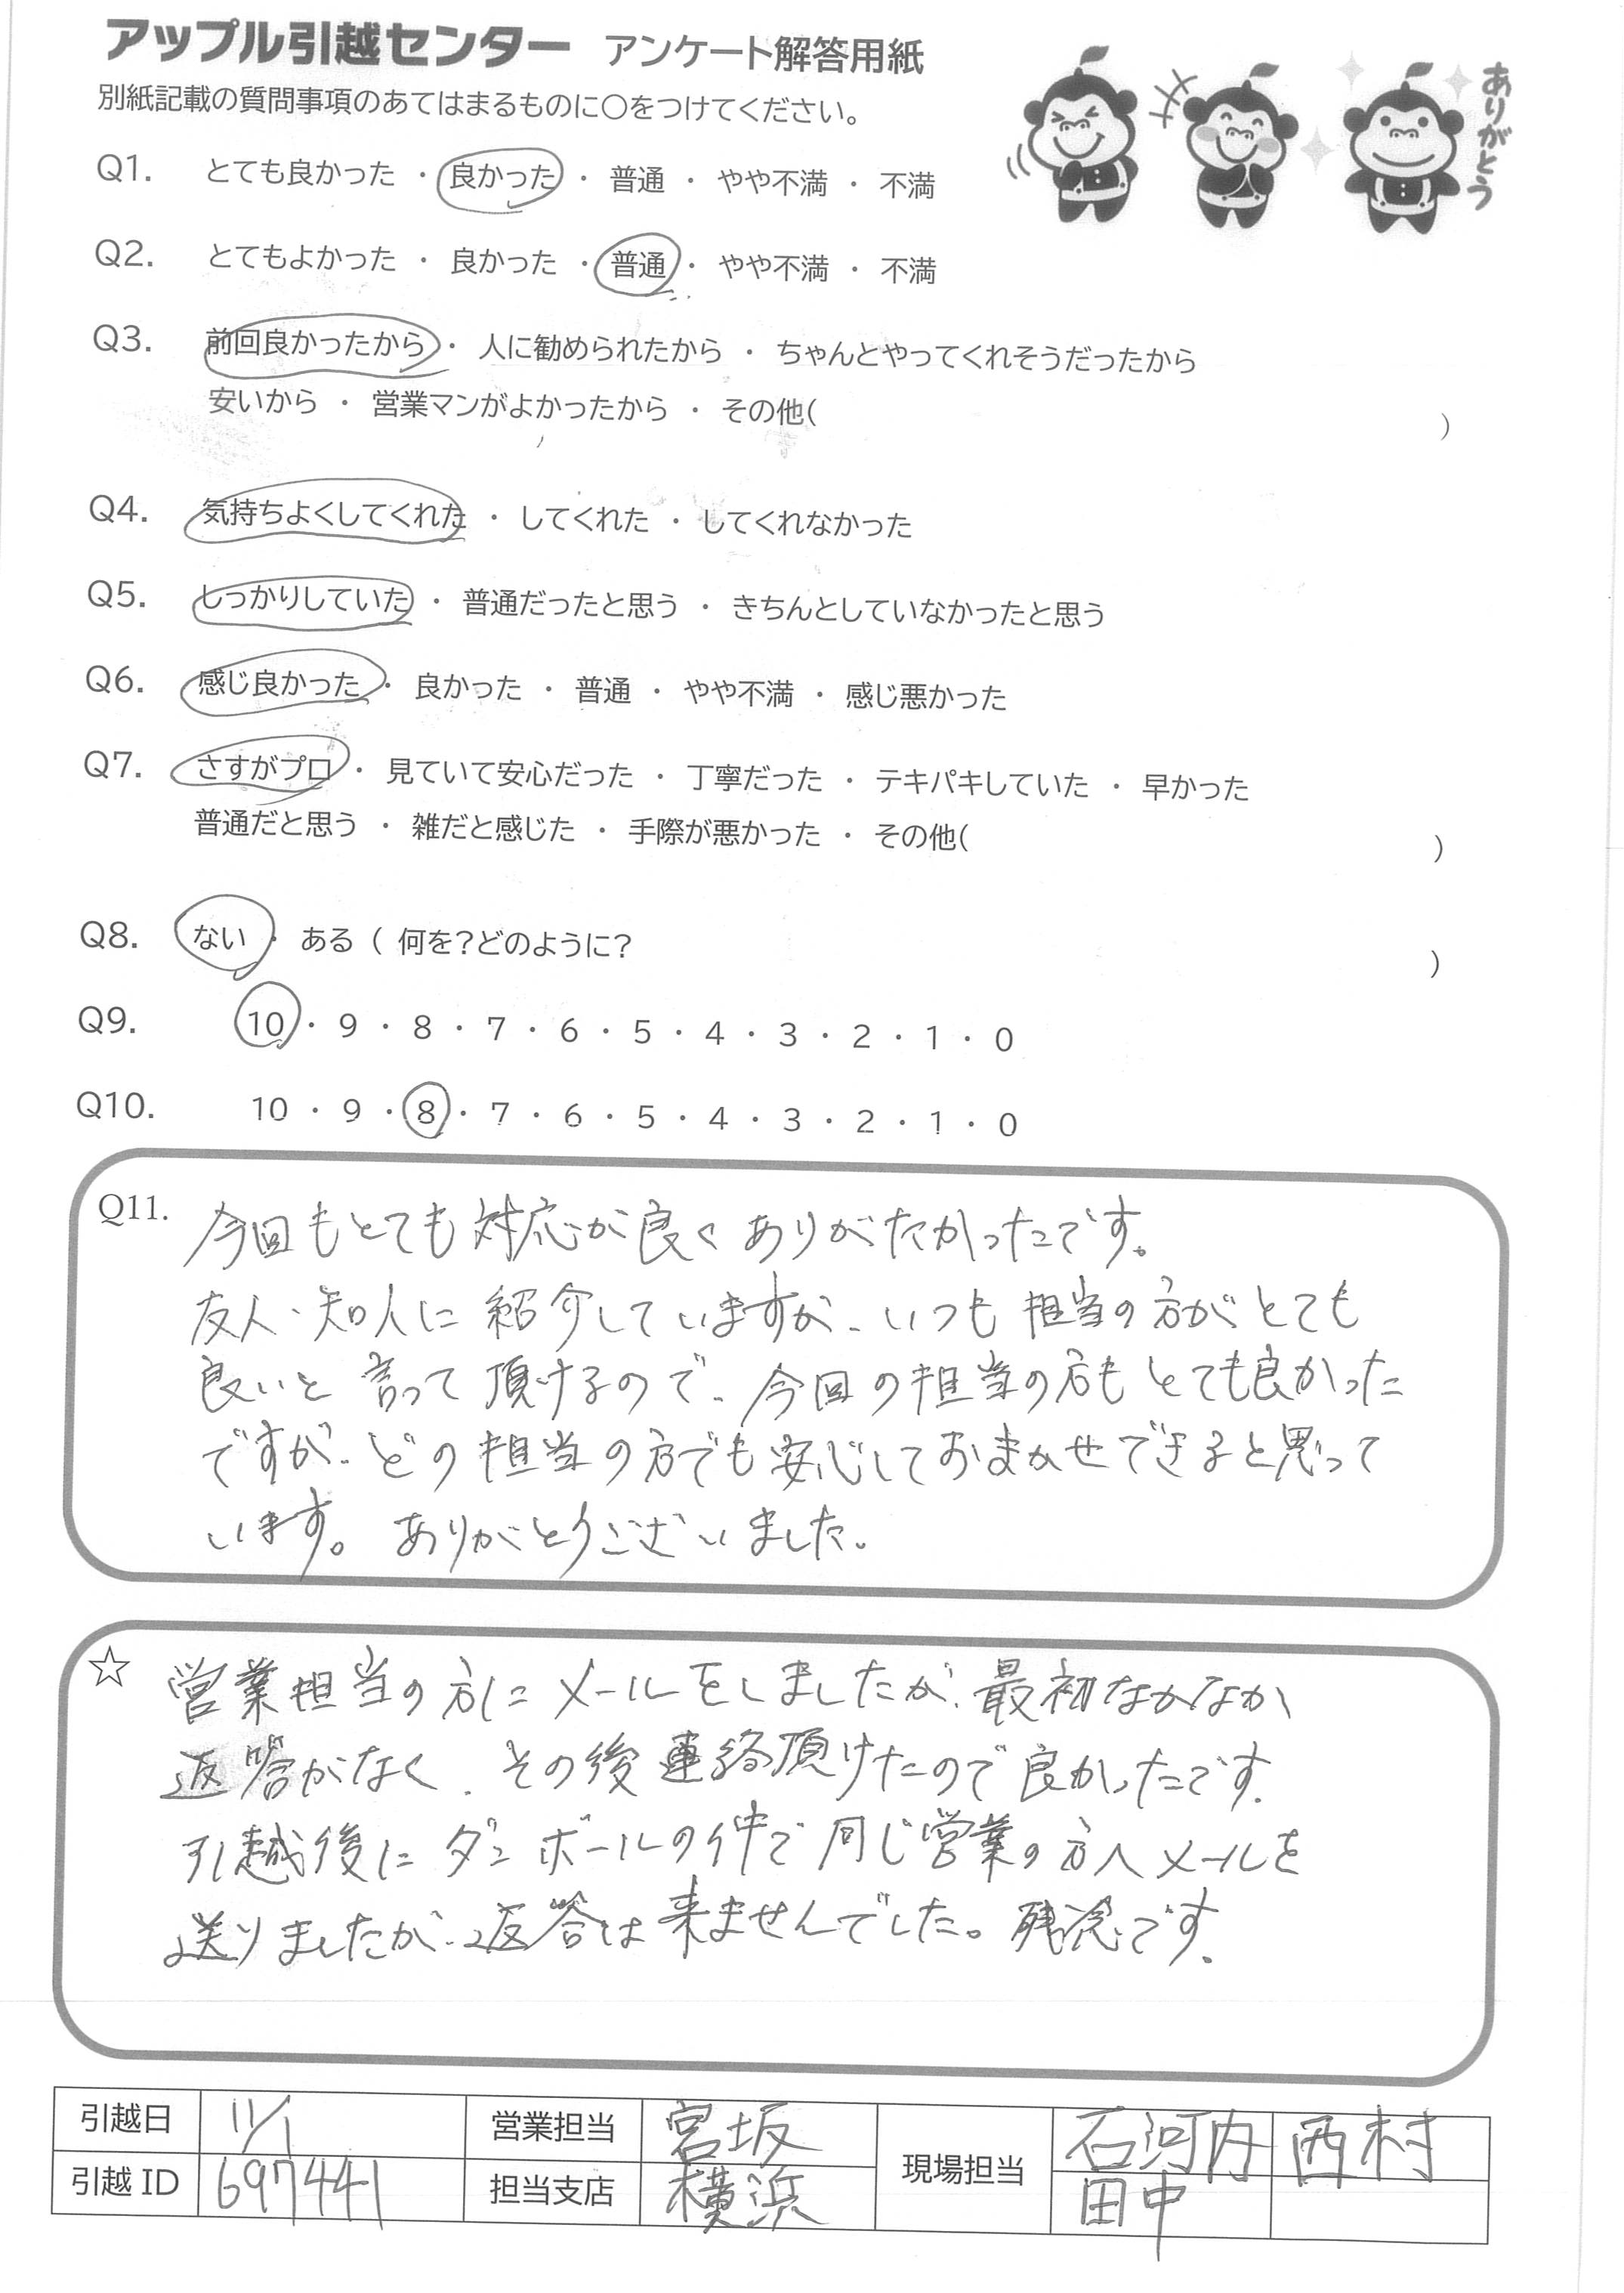 アップル引越センター アンケート解答用紙
別紙記載の質問事項のあてはまるものに○をつけてください。
ありがとう
Q1. とても良かった ・ 良かった ・ 普通 ・ やや不満 ・ 不満
Q2. とてもよかった ・ 良かった ・ 普通 ・ やや不満 ・ 不満
Q3. 前回良かったから ・ 人に勧められたから ・ ちゃんとやってくれそうだったから
安いから ・ 営業マンがよかったから ・ その他( )
Q4. 気持ちよくしてくれた ・ してくれた ・ してくれなかった
Q5. しっかりしていた ・ 普通だったと思う ・ きちんとしていなかったと思う
Q6. 感じ良かった ・ 良かった ・ 普通 ・ やや不満 ・ 感じ悪かった
Q7. さすがプロ ・ 見ていて安心だった ・ 丁寧だった ・ テキパキしていた ・ 早かった
普通だと思う ・ 雑だと感じた ・ 手際が悪かった ・ その他( )
Q8. ない ・ ある ( 何を?どのように? )
Q9. 10 ・ 9 ・ 8 ・ 7 ・ 6 ・ 5 ・ 4 ・ 3 ・ 2 ・ 1 ・ 0
Q10. 10 ・ 9 ・ 8 ・ 7 ・ 6 ・ 5 ・ 4 ・ 3 ・ 2 ・ 1 ・ 0
Q11. 今回もとても対応が良くありがたかったです。
友人・知人に紹介していますが、いつも担当の方がとても
良いと言って頂けるので、今回の担当の方もとても良かった
ですが、どの担当の方でも安心しておまかせできると思って
います。ありがとうございました。
☆ 営業担当の方にメールをしましたが、最初なかなか
返答がなく、その後連絡頂けたので良かったです。
引越後にダンボールの件で同じ営業の方へメールを
送りましたが、返答は来ませんでした。残念です。
引越日 11/1 営業担当 宮坂 現場担当 石河内 西村
引越ID 697441 担当支店 横浜 田中